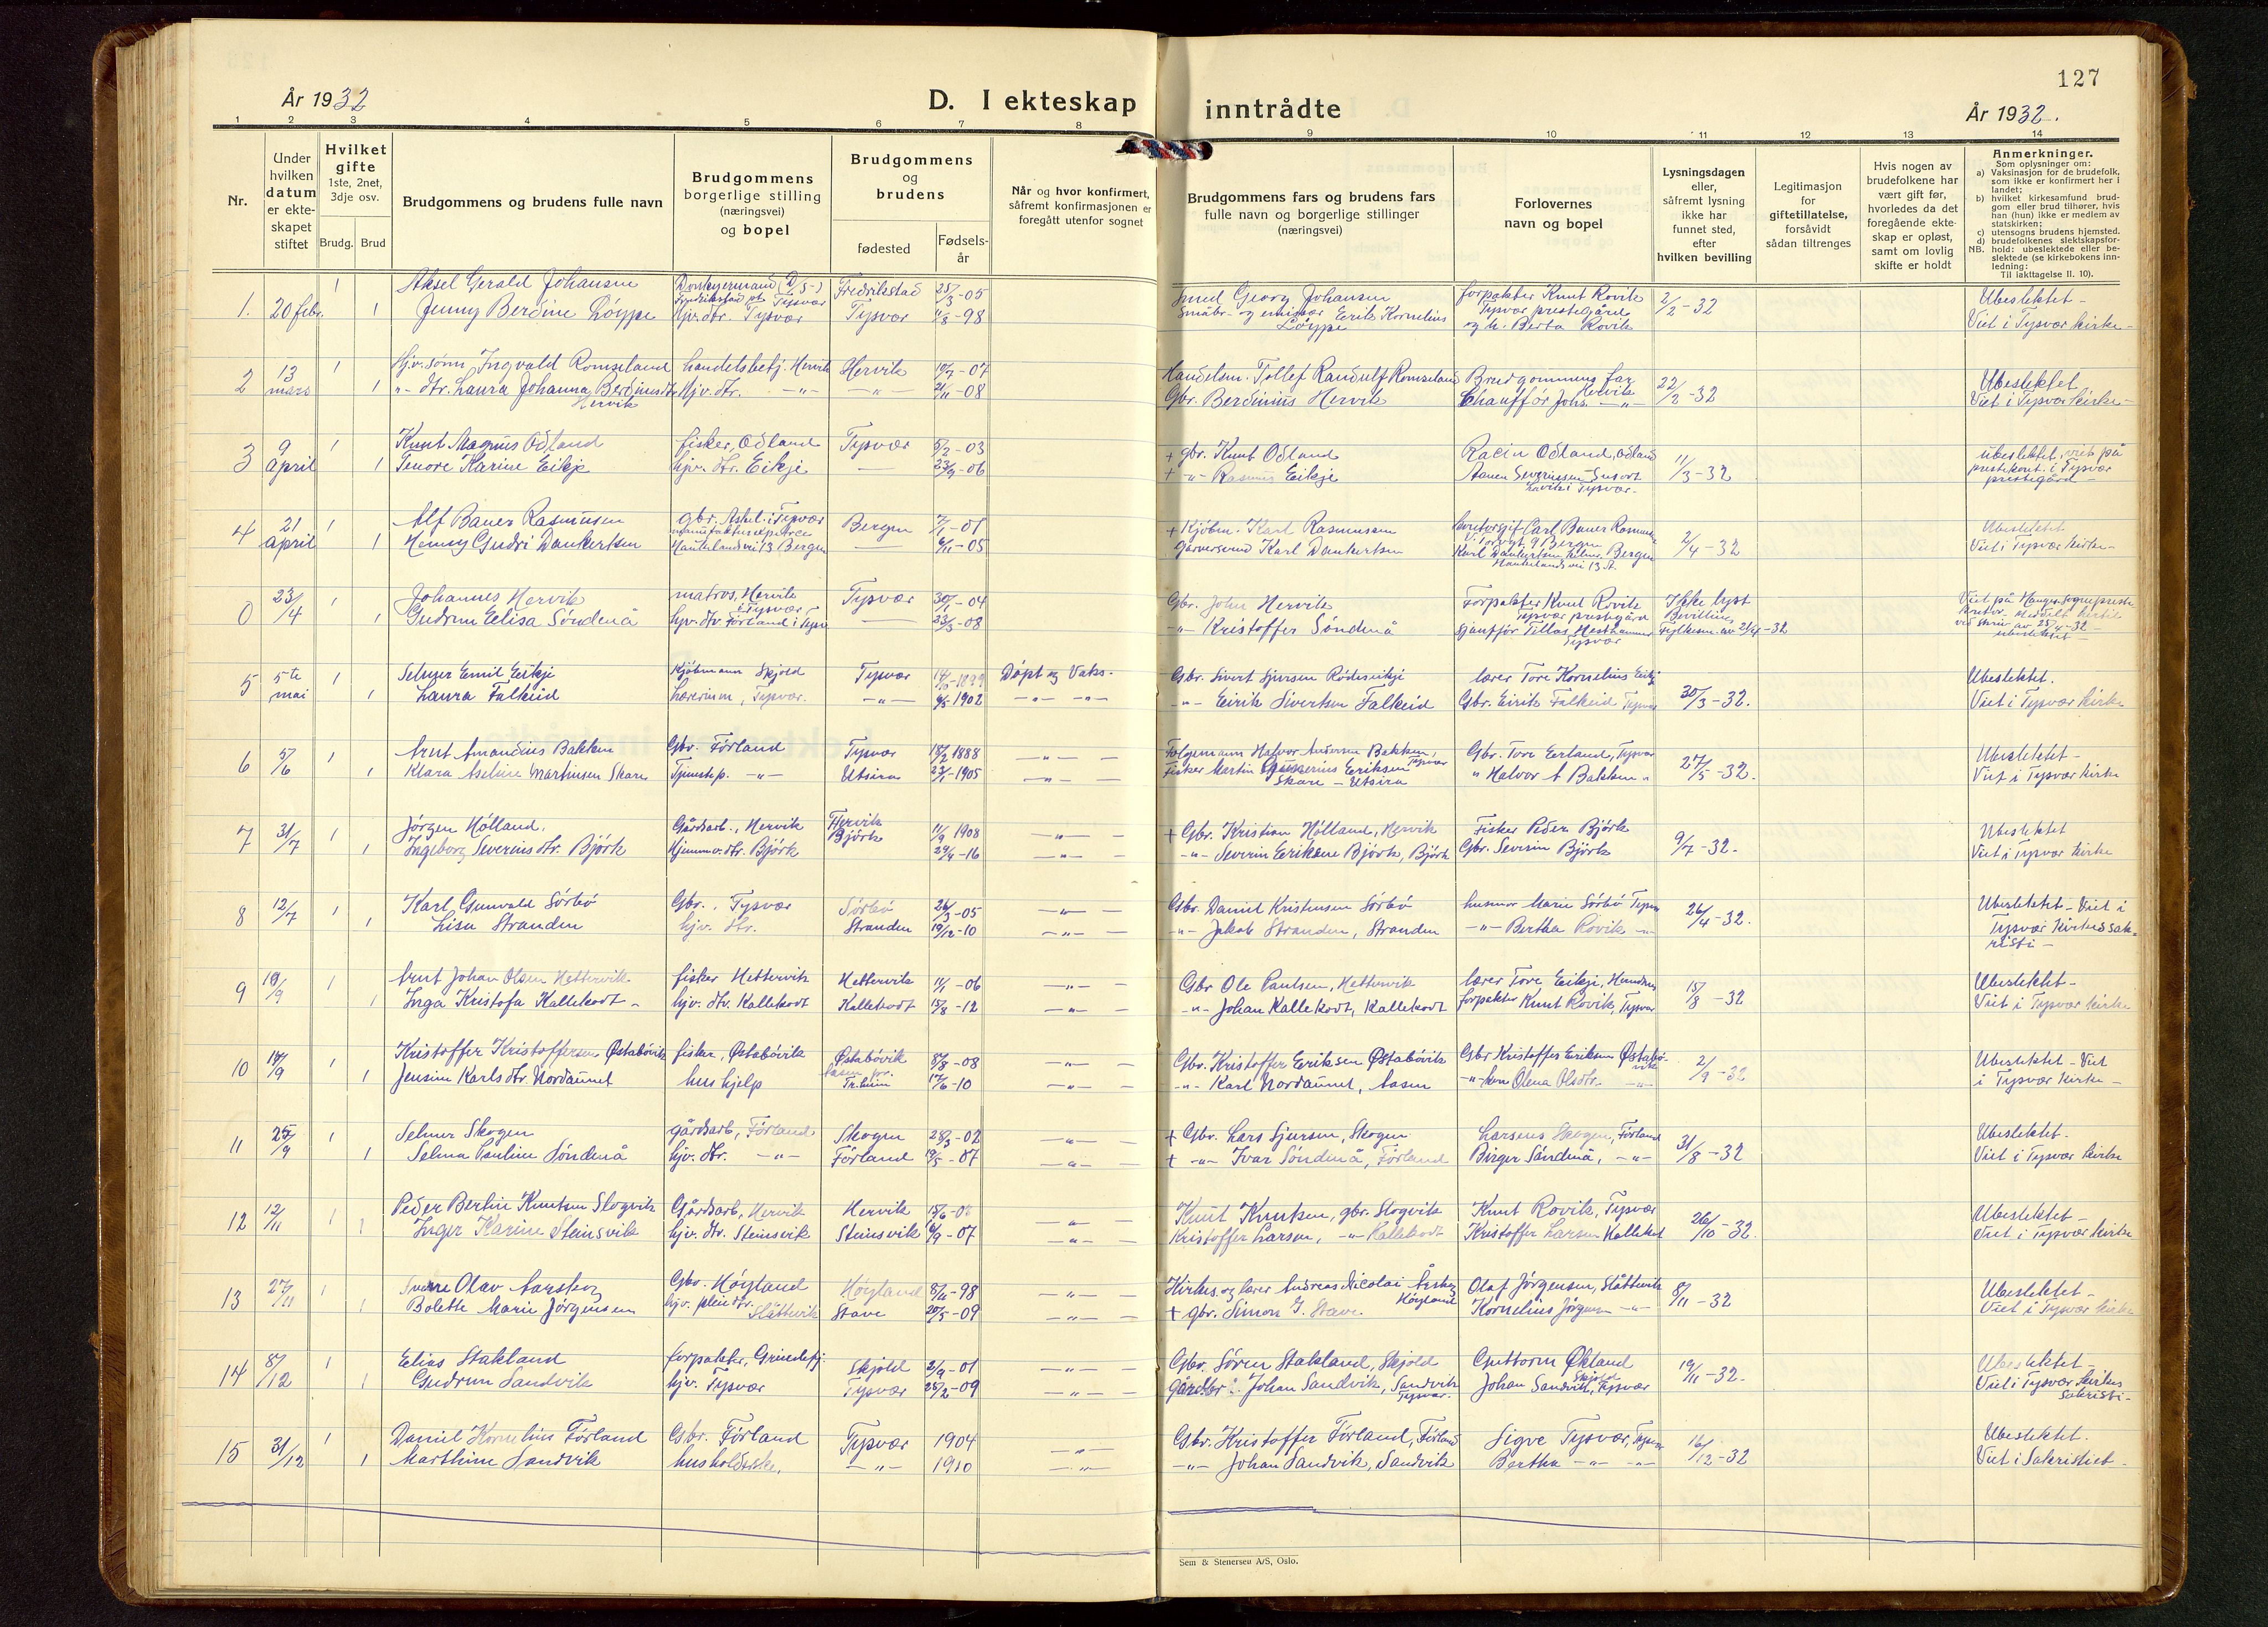 127
År 1932
D. I ekteskap inntrådte
År 1932.
1 2 3 4 5 6 7 8 9 10 11 12 13 14
Nr.
Under hvilken datum er ekteskapet stiftet
Hvilket gifte 1ste, 2net, 3dje osv.
Brudg. Brud
Brudgommens og brudens fulle navn
Brudgommens borgerlige stilling (næringsvei) og bopel
Brudgommens og brudens
fødested
Fødselsår
Når og hvor konfirmert, såfremt konfirmasjonen er foregått utenfor sognet
Brudgommens fars og brudens fars fulle navn og borgerlige stillinger (næringsvei)
Forlovernes navn og bopel
Lysningsdagen eller, såfremt lysning ikke har funnet sted, efter hvilken bevilling
Legitimasjon for giftetillatelse, forsåvidt sådan tiltrenges
Hvis nogen av brudefolkene har vært gift før, hvorledes da det foregående ekteskap er opløst, samt om lovlig skifte er holdt
Anmerkninger.
Som oplysninger om:
a) Vaksinasjon for de brudefolk, som ikke er konfirmert her i landet;
b) hvilket kirkesamfund brudgom eller brud tilhører, hvis han (hun) ikke er medlem av statskirken;
c) utensogns brudens hjemsted.
d) brudefolkenes slektskapsforhold: ubeslektede eller beslektede (se kirkebokens innledning:
NB. Til iakttagelse II. 10).
1. 20 febr. 1 Aksel Gerald Johansen Fredrikstad 25/3-05 Smed Georg Johansen forpakter Knut Rovik 2/2-32 Ubeslektet-
1 Jenny Berdine Løyppe hjv. dtr. Tysvær Tysvær -98 Småbr. og emissær Eerik Kornelius Løyppe Tysvær prestegård og h. Berta Rovik Viet i Tysvær kirke-
2 13 mars 1 Hjv. sønn Ingvald Romseland handelsbetj. Hervik Hervik -07 Handelsm. Tollef Randulf Romseland Brudgommens far Hervik 22/2-32 Ubeslektet.
1 -"- dtr. Laura Johanna Berdinusdtr. Hervik Hjv. dtr. -"- -"- 21/11-08 Gbr. Berdinius Hervik Chauffør Johs. -"- Viet i Tysvær kirke-
3 9 april 1 Knut Magnus Odland fisker, Odland Tysvær 5/2-03 + gbr. Knut Odland Odland, Odland 11/3-32 ubeslektet, viet på
1 Tenore Karine Eikje hjv. dtr. Eikje -06 + -"- Rasmus Eikje i Tysvær. prestekont. i Tysvær prestegård-
4 21 april 1 Alf Bauer Rasmusen Bergen 7/1-01 + Kjøbm. Karl Rasmusen Carl Bauer Bergen 2/4-32 Ubeslektet
1 Henny Gudri Dankertsen 13 Bergen 6/11-05 Garversvend Karl Dankertsen Karl Dankertsen Bergen 13 A. Viet i Tysvær kirke-
0 23/4 1 Johannes Hervik matros, Hervik i Tysvær Tysvær 30/1-04 Gbr. John Hervik Forpakter Knut Rovik Tysvær prestegård Ikke lyst Bevilling
1 Gudrun Elisa Søndenå hjv. dtr Førland i Tysv. 23/3-08 -"- Kristoffer Søndenå Tysvær -32 ubeslektet-
5 5te mai 1 Selmer Emil Eikje Kjøbmann Skjold Tysvær -1899 Døpt og Vaks. Gbr. Sivert Sjursen lærer Tore Kornelius Eikje 30/3-32. Ubeslektet.
1 Laura Falkeid Lærerinne, Tysvær. -"- -1902 -"- -"- -"- Eirik Sivertsen Falkeid Gbr. Eirik Falkeid Tysvær Viet i Tysvær kirke
6 5/6 1 Arnt Amandius Bakken Gbr. Førland Tysvær 18/2 1888 -"- Halvor Andersen Bakken, Tysvær Gbr. Tore Eerland, Tysvær 27/5-32. Ubeslektet-
1 Klara Aseline Martinsen Skare Tjenestep. -"- Utsira 23/1-1905 -"- Fisker Martin Eriksen Skare - Utsira " Halvor A Bakken " Viet i Tysvær kirke
7 31/7 1 Jørgen Hølland. Gårdsarb., Hervik Hervik 11/9 1908 -"- + Gbr. Kristian Hølland, Hervik Fisker Peder Bjørk 9/7-32. Ubeslektet
1 Ingeborg Severinsdtr. Bjørk Hjemmev. dtr. Bjørk Bjørk 29/4-16 -"- -"- Severin Eriksen Bjørk, Bjørk Gbr. Severin Bjørk Viet i Tysvær kirke
8 12/7 1 Karl Gunvald Sørbø Gbr., Tysvær Sørbø 26/3-05 -"- Gbr. Daniel Kristensen Sørbø husmor Marie Sørbø Tysvær 26/4-32. Ubeslektet-Viet i
1 Lisa Stranden hjv. dtr. Stranden 19/12-10 -"- -"- Jakob Stranden, Stranden -"- Bertha Rovik -"- Tysvær kirkes sakristi-
9 18/9 1 Arnt Johan Olsen Hettervik fisker Hettervik Hettervik 11/1-06 -"- Gbr Ole Paulsen, Hettervik lærer Tore Eikje, 15/8-32 Ubeslektet-
1 Inga Kristofa Kallekodt- hjv. dtr Kallekodt Kallekodt 15/8-12 -"- -"- Johan Kallekodt, Kallekodt forpakter Knut Rovik, Tysvær Viet i Tysvær kirke
10 /9 1 Kristoffer Kristoffersen Østabøvik fisker, Østabøvik Østabøvik 8/8-08 -"- Gbr. Kristoffer Eriksen Østabøvik Gbr Kristoffer Eriksen Østabøvik 2/9-32 Ubeslektet-Viet
1 Jensine Karlsdtr. Nordaunet hushjelp Åsen pr. Tr.heim 17/6-10 -"- -"- Karl Nordaunet, Aasen -"- kone Olena Olsdtr. -"- i Tysvær kirke-
11 25/9 1 Selmer Skogen gårdsarb, Førland Skogen 28/3-02 -"- + Gbr. Lars Sjursen, Skogen Larsens Skogen, Førland 31/8-32 Ubeslektet-
1 Selma Pauline Søndenå hjv. dtr. -"- Førland 19/5-07 -"- + -"- Ivar Søndenå, Førland Birger Søndenå, -"- Viet i Tysvær kirke
12 12/11 1 Peder Bertin Knutsen Slogvik Gårdsarb, Hervik Hervik -"- Knut Knutsen, gbr. Slogvik Knut Rovik, Tysvær 26/10-32. Ubeslektet-
1 Inger Karine Steinsvik hjv. dtr. Steinsvik Steinsvik 6/9-07 -"- Kristoffer Larsen, -"- Kallekodt Kristoffer Larsen Kallekodt Viet i Tysvær kirke
13 27/11 1 Sverre Olav Aarskog Gbr. Høyland Høyland 8/11-98 -"- Kirkes. og lærer Andreas Nicolai Årskog Høyland Olaf Jørgensen, Slåttevik 8/11-32 Ubeslektet-
1 Bolette Marie Jørgensen hjv. pleiedtr. Slåttevik Stave 20/5-09 -"- + gbr. Simon G. Stave. Kornelius Jørgensen -"- Viet i Tysvær kirke
14 8/12 1 Elias Stakland forpakter, Grindefj. Skjold 2/9-01 -"- Gbr. Søren Stakland, Skjold Guttorm Økland Skjold 19/11-32. Ubeslektet-
1 Gudrun Sandvik hjv. Tysvær Tysvær 25/2-09 -"- Gårdbr. Johan Sandvik, Sandvik Tysvær. Johan Sandvik, Tysvær Viet i Tysvær kirkes sakristi-
15 31/12 1 Daniel Kornelius Førland Gbr. Førland Tysvær 1904 -"- Gbr. Kristoffer Førland, Førland Sigve Tysvær, Tysvær 16/12-32 Ubeslektet.
1 Marthine Sandvik husholderske, -"- 1910 -"- -"- Johan Sandvik, Sandvik Bertha -"- -"- Viet i Sakristiet-
Sem & Stenersen A/S, Oslo.